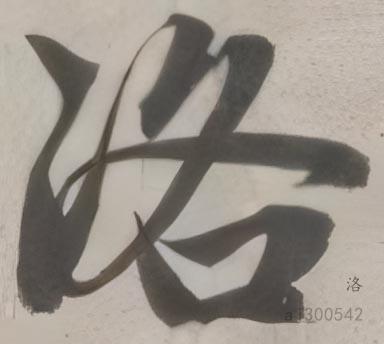 洛
洛
a1300542